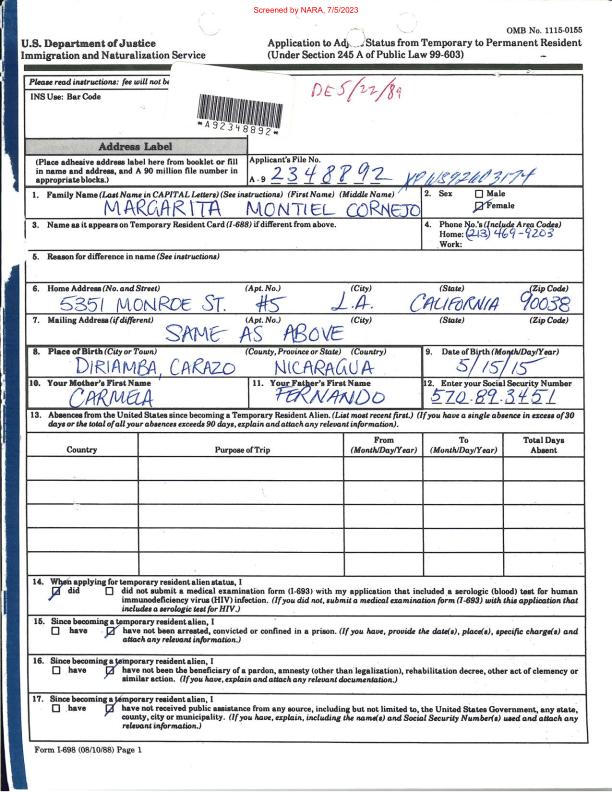 Screened by NARA, 7/5/2023
OMB No. 1115-0155
U.S. Department of Justice
Immigration and Naturalization Service
Application to Adj Status from Temporary to Permanent Resident
(Under Section 245 A of Public Law 99-603)
Please read instructions: fee will not be
INS Use: Bar Code
*A92348892*
DE 5/22/89
Address Label
(Place adhesive address label here from booklet or fill in name and address, and A 90 million file number in appropriate blocks.)
Applicant's File No.
A - 9 2348892
1. Family Name (Last Name in CAPITAL Letters) (See instructions) (First Name) (Middle Name)
MARGARITA MONTIEL CORNEJO
2. Sex Male
Female
3. Name as it appears on Temporary Resident Card (I-688) if different from above.
4. Phone No.'s (Include Area Codes)
Home: (213) 469-9203
Work:
5. Reason for difference in name (See instructions)
6. Home Address (No. and Street) (Apt. No.) (City) (State) (Zip Code)
5351 MONROE ST. #5 L.A. CALIFORNIA 90038
7. Mailing Address (if different) (Apt. No.) (City) (State) (Zip Code)
SAME AS ABOVE
8. Place of Birth (City or Town) (County, Province or State) (Country)
DIRIAMBA, CARAZO NICARAGUA
9. Date of Birth (Month/Day/Year)
5/15/15
10. Your Mother's First Name
CARMELA
11. Your Father's First Name
FERNANDO
12. Enter your Social Security Number
570.89.3451
13. Absences from the United States since becoming a Temporary Resident Alien. (List most recent first.) (If you have a single absence in excess of 30
days or the total of all your absences exceeds 90 days, explain and attach any relevant information).
Country Purpose of Trip From (Month/Day/Year) To (Month/Day/Year) Total Days Absent
14. When applying for temporary resident alien status, I
did did not submit a medical examination form (I-693) with my application that included a serologic (blood) test for human
immunodeficiency virus (HIV) infection. (If you did not, submit a medical examination form (I-693) with this application that
includes a serologic test for HIV.)
15. Since becoming a temporary resident alien, I
have have not been arrested, convicted or confined in a prison. (If you have, provide the date(s), place(s), specific charge(s) and
attach any relevant information.)
16. Since becoming a temporary resident alien, I
have have not been the beneficiary of a pardon, amnesty (other than legalization), rehabilitation decree, other act of clemency or
similar action. (If you have, explain and attach any relevant documentation.)
17. Since becoming a temporary resident alien, I
have have not received public assistance from any source, including but not limited to, the United States Government, any state,
county, city or municipality. (If you have, explain, including the name(s) and Social Security Number(s) used and attach any
relevant information.)
Form I-698 (08/10/88) Page 1